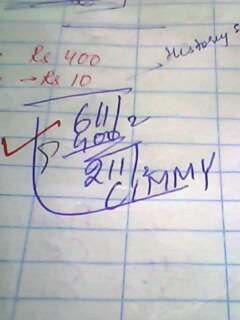 Rs 400
→ Rs 10
History
611/2
400
211/2
CIMMY